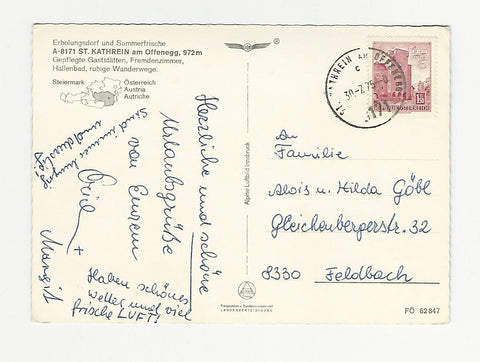 Erholungsdorf und Sommerfrische
A-8171 ST. KATHREIN am Offenegg, 972m
Gepflegte Gaststätten, Fremdenzimmer,
Hallenbad, ruhige Wanderwege.
Steiermark
Österreich
Austria
Autriche
Herzliche und schöne
Urlaubsgrüße
von Eurem
und
+
Margit
Haben schönes
Wetter und viel
frische LUFT!
Alpine Luftbild Innsbruck
LANDESVERTEIDIGUNG
ST. KATHREIN AM OFFENEGG
c
30.-7.75
8171
An
Familie
Alois u. Hilda Göbl
Gleichenbergerstr. 32
8330 Feldbach
FÖ 62847